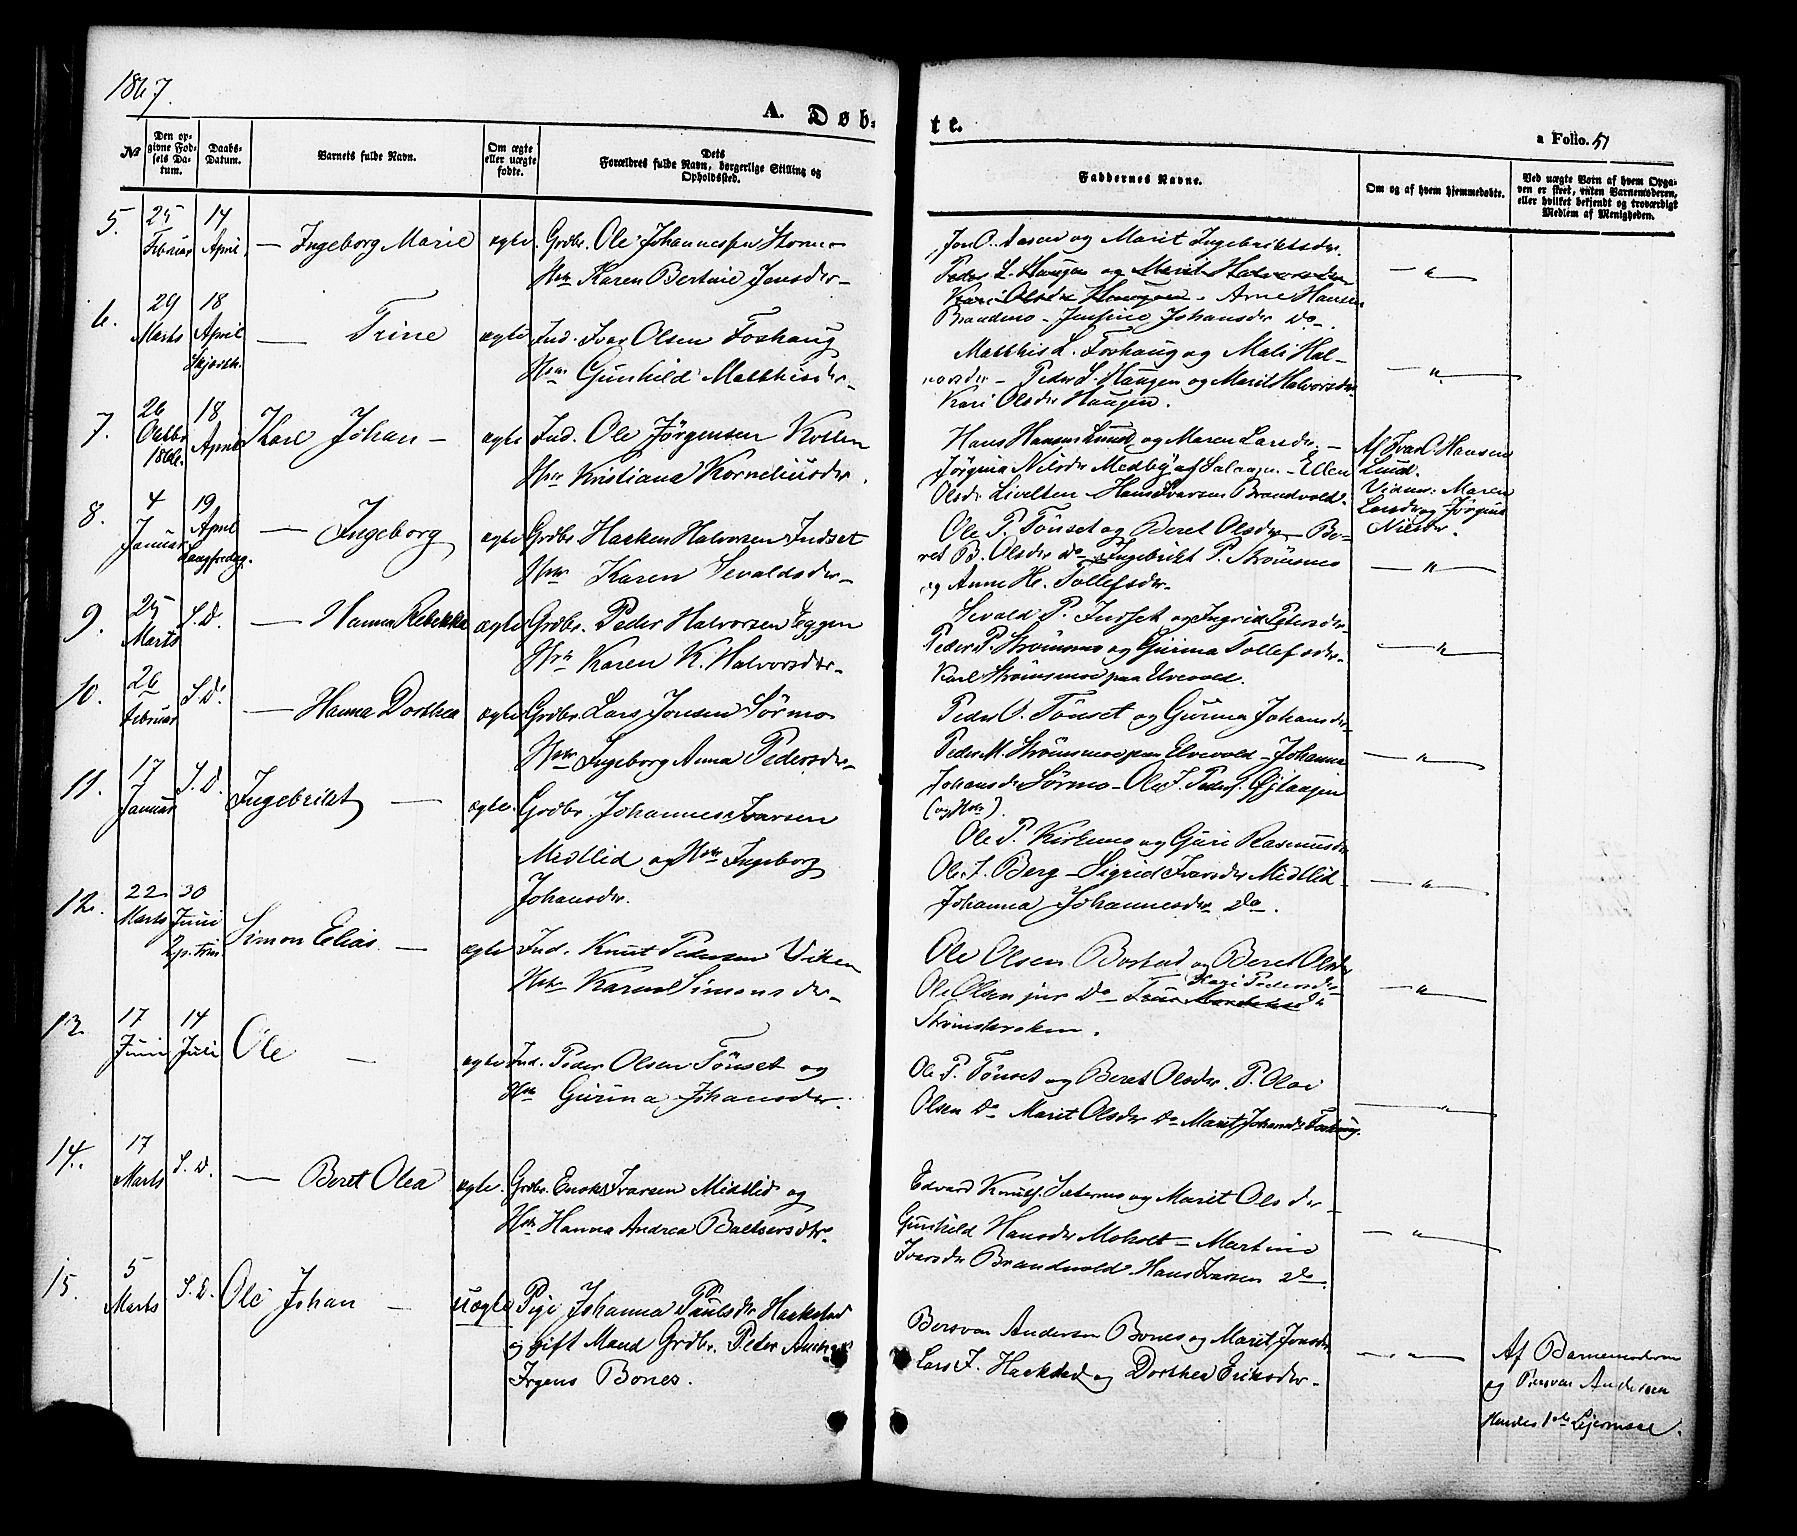 1867.
A. Døb-
te.
a Folio. 51
№
Den op-
givne Fød-
sels Da-
tum.
Daabs-
Datum.
Barnets fulde Navn.
Om ægte
eller uægte
fødte.
Dets
Forældres fulde Navn, borgerlige Stilling og
Opholdssted.
Faddernes Navne.
Om og af hvem hjemmedøbte.
Ved uægte Børn af hvem Opga-
ven er skeet, enten Barnemoderen,
eller hvilket bekjendt og troværdigt
Medlem af Menigheden.
5. 25 Februar 14 April — Ingeborg Marie ægte Grdbr. Ole Johannessen Stormo
Hstr Karen Bertine Jonsdr.
Jon O. Aasen og Marit Ingebriktsdr.
Peder L. Haugen og Marit Halvorsdr
Kari Olsdr Haugen - Arne Hansen
Brandmo - Jensine Johansdr Do. — " —
6. 29 Marts 18 April Skjærth. — Trine ægte Ind. Ivar Olsen Foshaug
Hstr Gunhild Matthisdr.
Matthis L. Foshaug og Mali Hal-
vorsdr - Peder L. Haugen og Marit Halvorsdr
Kari Olsdr Haugen. — " —
7. 26 Octbr 1866. 18 April Karl Johan — ægte Ind. Ole Jørgensen Kollen
Hstr Kristiana Korneliusdr.
Hans Hansen Lund og Maren Larsdr. —
Jørgina Nilsdr Medby af Salangen - Ellen
Olsdr Livelten Hans Ivarsen Brandvold.
Af Ivar Hansen
Lund.
Vidner: Maren
Larsdr og Jørgina
Nilsdr.
8. 4 Januar 19 April Langfredag. — Ingeborg ægte Grdbr Haaken Halvorsen Indset
Hstr Karen Sevaldsdr.
Ole P. Tønset og Beret Olsdr - Be-
ret B. Olsdr Do Ingebrikt P. Strømsmo
og Anne H. Tollefsdr. — " —
9. 25 Marts S.D. — Hanna Rebekka ægte Grdbr. Peder Halvorsen Eggen
Hstr Karen K. Halvorsdr.
Sevald P. Indset og Ingrid Petersdr.
Peder P. Strømsmo og Gurina Tollefsdr.
Karl Strømsmoe paa Elvevold. — " —
10. 26 Februar S.D. — Hanna Dorthea ægte Grdbr. Lars Jonsen Sørmo
Hstr Ingeborg Anna Pedersdr.
Peder O. Tønset og Gurina Johansdr
Peder M. Strømsmoe paa Elvevold - Johanna
Johansdr Sørmo - Ole J. Peders. Øjlaagin
(og Hstr). — " —
11. 17 Januar S.D. Ingebrikt — ægte. Grdbr. Johannes Ivarsen
Midtlid og Hstr Ingeborg
Johansdr.
Ole P. Kirkmo og Guri Rasmusdr
Ole J. Berg - Sigrid Ivarsdr Midtlid
Johanna Johannesdr Do. — " —
12. 22 Marts 30 Juni 2 p. Trin. Simon Elias — ægte Ind. Knut Pedersen Viken
Hstr Karen Simonsdr.
Ole Olsen Bostad og Beret Olsdr
Ole Olsen jun Do Kari Pedersdr
Strømskroken. — " —
13. 17 Juni 14 Juli Ole — ægte Ind. Peder Olsen Tönset og
Hstr Gurina Johansdr.
Ole P. Tönset og Beret Olsdr. P. Olai
Olsen Do Marit Olsdr Do Marit Johansdr Foshaug. — " —
14. 17 Marts S.D. — Beret Olea ægte. Grdbr. Enok Ivarsen Midtlid og
Hstr Hanna Andrea Baltzersdtr.
Edvard Knuts. Sætermo og Marit Olsdr
Gunhild Hansdr Moholt - Martine
Ivarsdr Brandvold Hans Ivarsen Do. — " —
15. 5 Marts S.D. Ole Johan — uægte Pige Johanna Paulsdr Hackstad
og gift Mand Grdbr. Peter Andreas
Irgens Bones.
Bersvan Andersen Bones og Marit Jonsdr
Lars J. Hackstad og Dorthea Eriksdr. — " —
Af Barnemoderen
og Bersvan Andersen
Hendes 1ste Lejermaal.